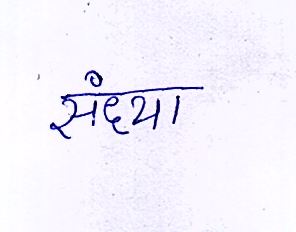 संध्या